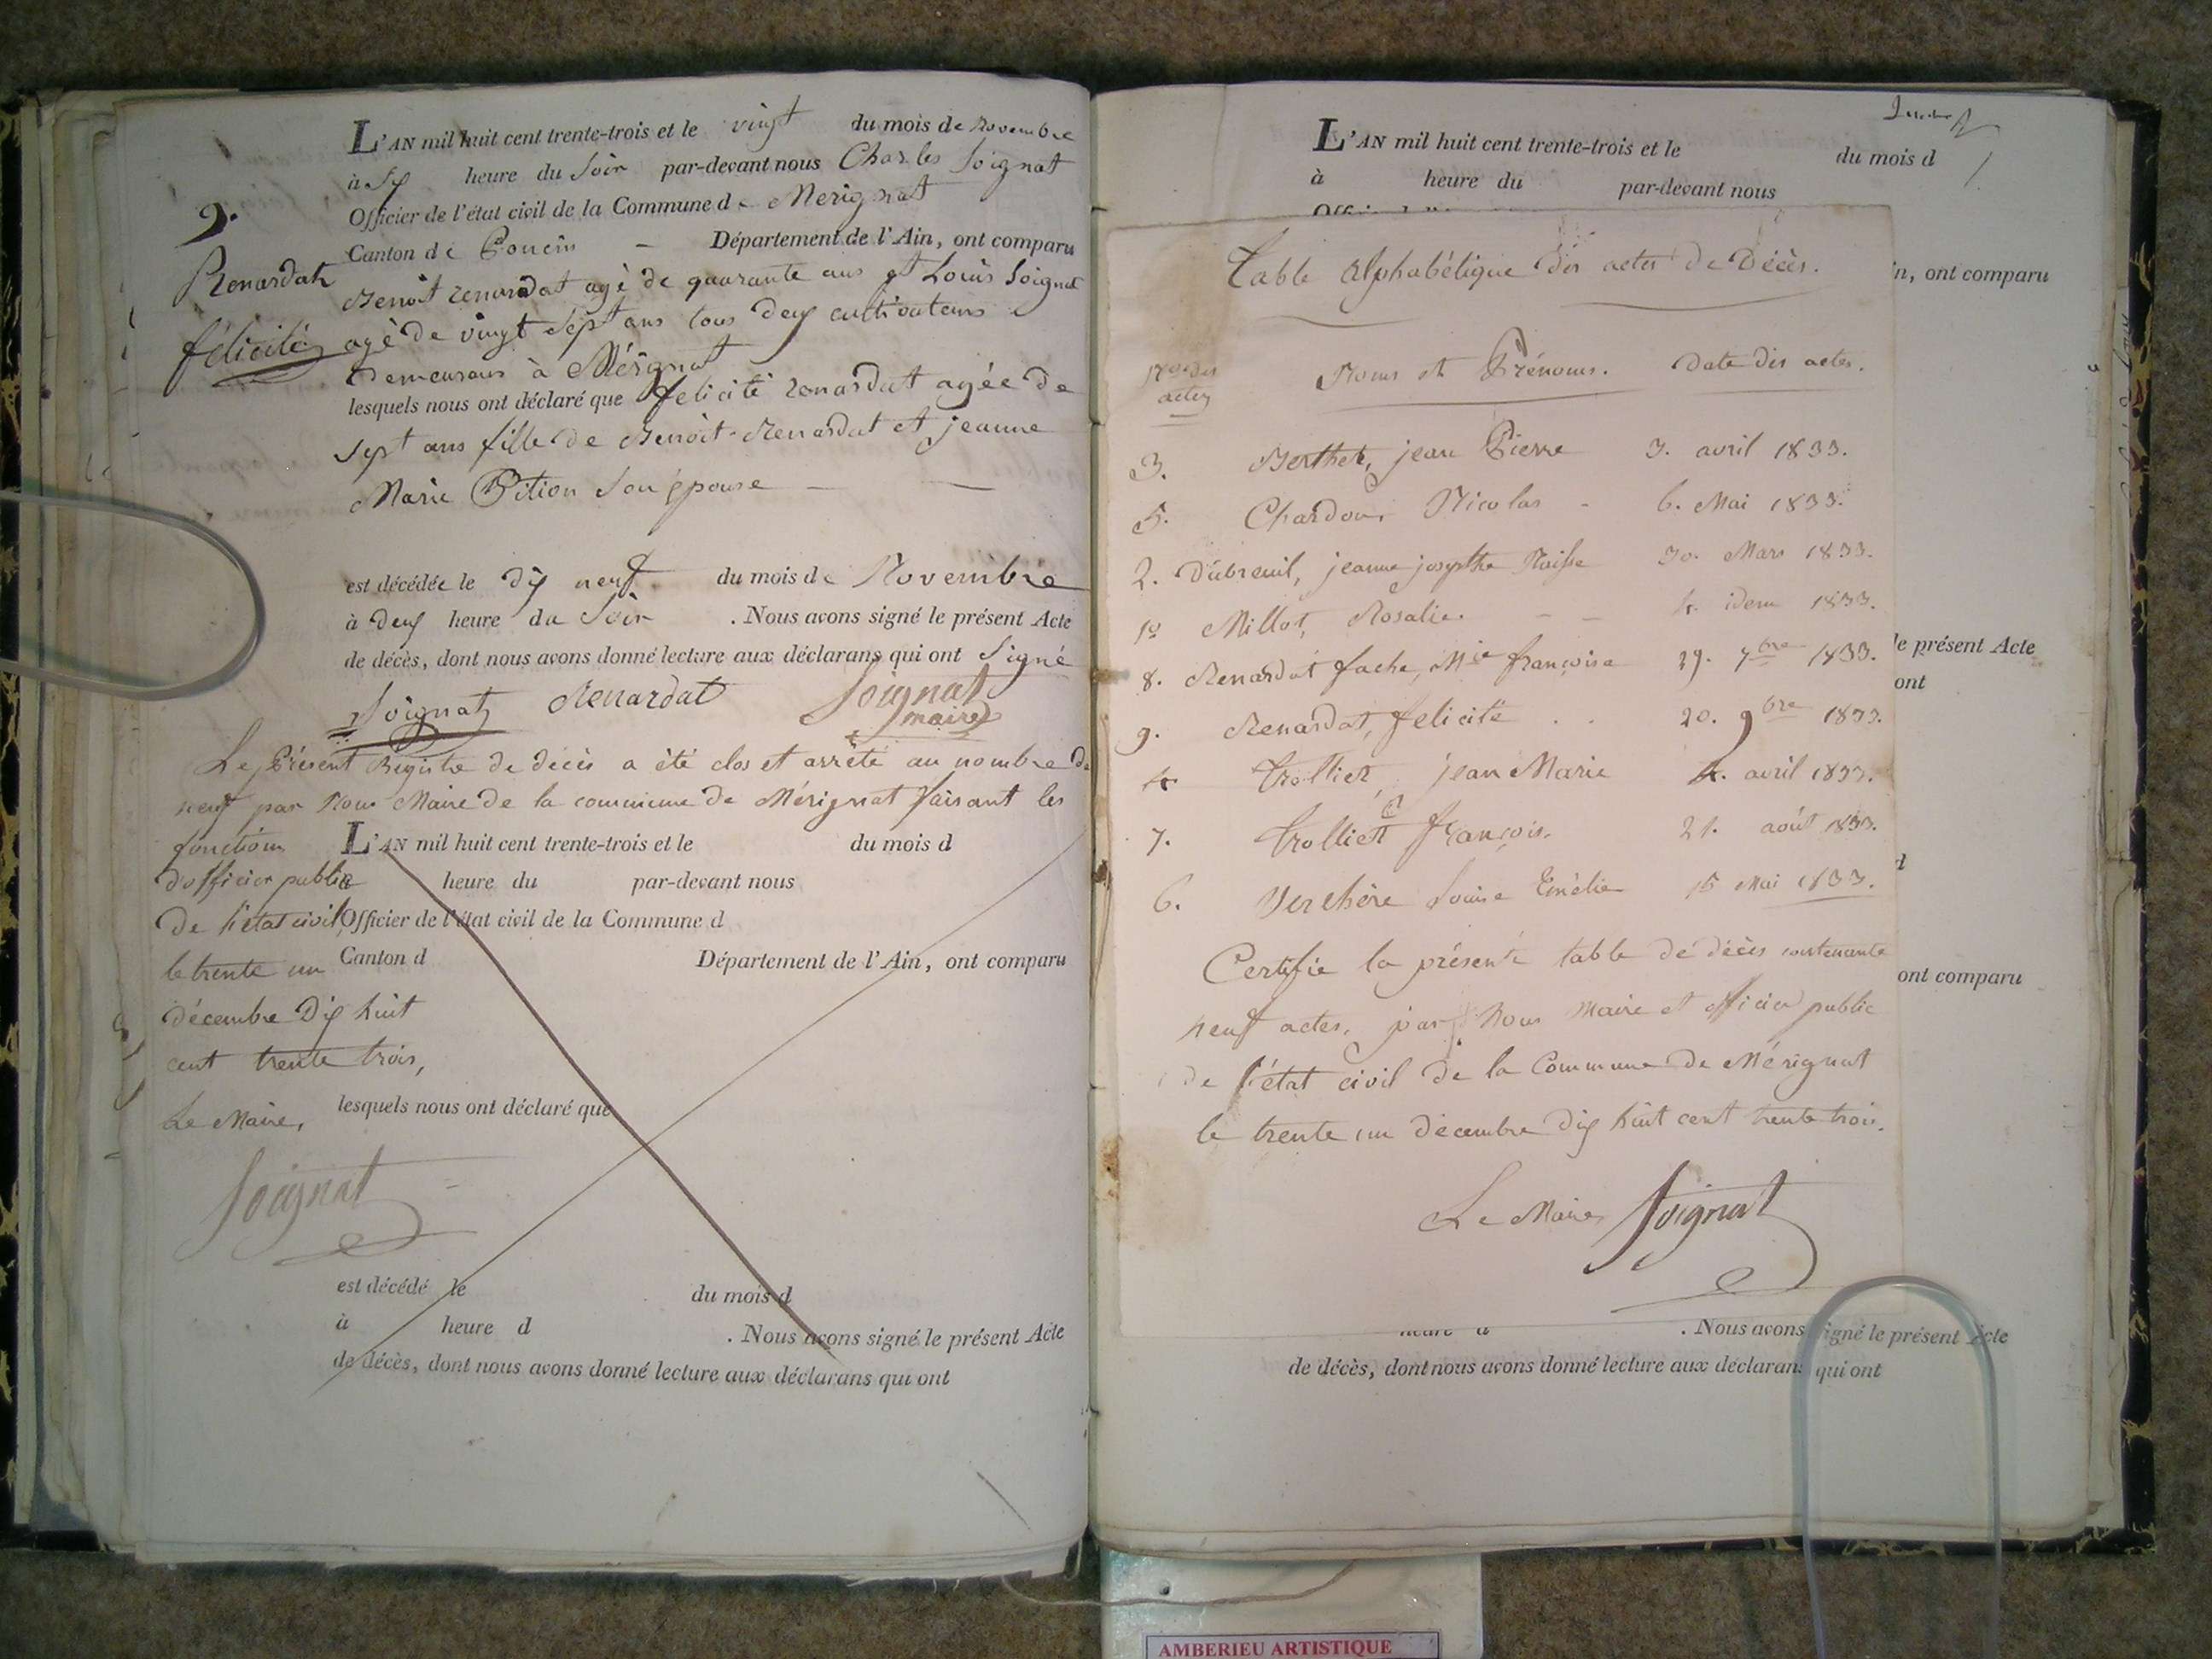 9.
Renardat
félicité
L'AN mil huit cent trente-trois et le vingt du mois de Novembre
à six heure du Soir par-devant nous Charles Soignat
Officier de l'état civil de la Commune de Merignat
Canton de Poncin – Département de l'Ain, ont comparu
Benoit renardat agé de quarante ans et Louis Soignat
agé de vingt sept ans tous deux cultivateurs
Demeurans à Mérignat
lesquels nous ont déclaré que félicité renardat agée de
sept ans fille de Benoit Renardat et jeanne
Marie Pition son épouse –
est décédée le dix neuf du mois de Novembre
à deux heure du Soir . Nous avons signé le présent Acte
de décès, dont nous avons donné lecture aux déclarans qui ont Signé
Soignat Renardat Soignat
maire
Le Présent Registre de décès a été clos et arrêté au nombre de
neuf par Nous Maire de la commune de Mérignat faisant les
fonctions
d'officier public
de l'état civil
le trente un
décembre dix huit
cent trente trois,
Le Maire,
Soignat
L'AN mil huit cent trente-trois et le du mois d
heure du par-devant nous
Officier de l'état civil de la Commune d
Canton d Département de l'Ain, ont comparu
lesquels nous ont déclaré que
est décédé le du mois d
à heure d . Nous avons signé le présent Acte
de décès, dont nous avons donné lecture aux déclarans qui ont
L'AN mil huit cent trente-trois et le du mois d
à heure du par-devant nous
n, ont comparu
Table Alphabétique des actes de Décès.
Nos des actes Noms et Prénoms. Date des actes.
3. Berthet, jean Pierre 3. avril 1833.
5. Chardon, Nicolas - 6. Mai 1833.
2. Dubreuil, jeanne josepthe 30. Mars 1833.
1o Millot, Rosalie. – – 4. idem 1833.
8. Renardat fache, Mie françoise 29. 7bre 1833.
9. Renardat, félicité . . 20. 9bre 1833.
4 Trolliet, jean Marie 4. avril 1833.
7. Trolliet françois. 21. août 1833.
6. Verchère Louise Emélie 15 Mai 1833.
Certifie la présente table de décès contenante
neuf actes, par Nous Maire et officier public
de l'état civil de la Commune de Mérignat
le trente un décembre dix huit cent trente trois.
Le Maire, Soignat
le présent Acte
ont
ont comparu
. Nous avons signé le présent Acte
de décès, dont nous avons donné lecture aux déclarans qui ont
AMBERIEU ARTISTIQUE